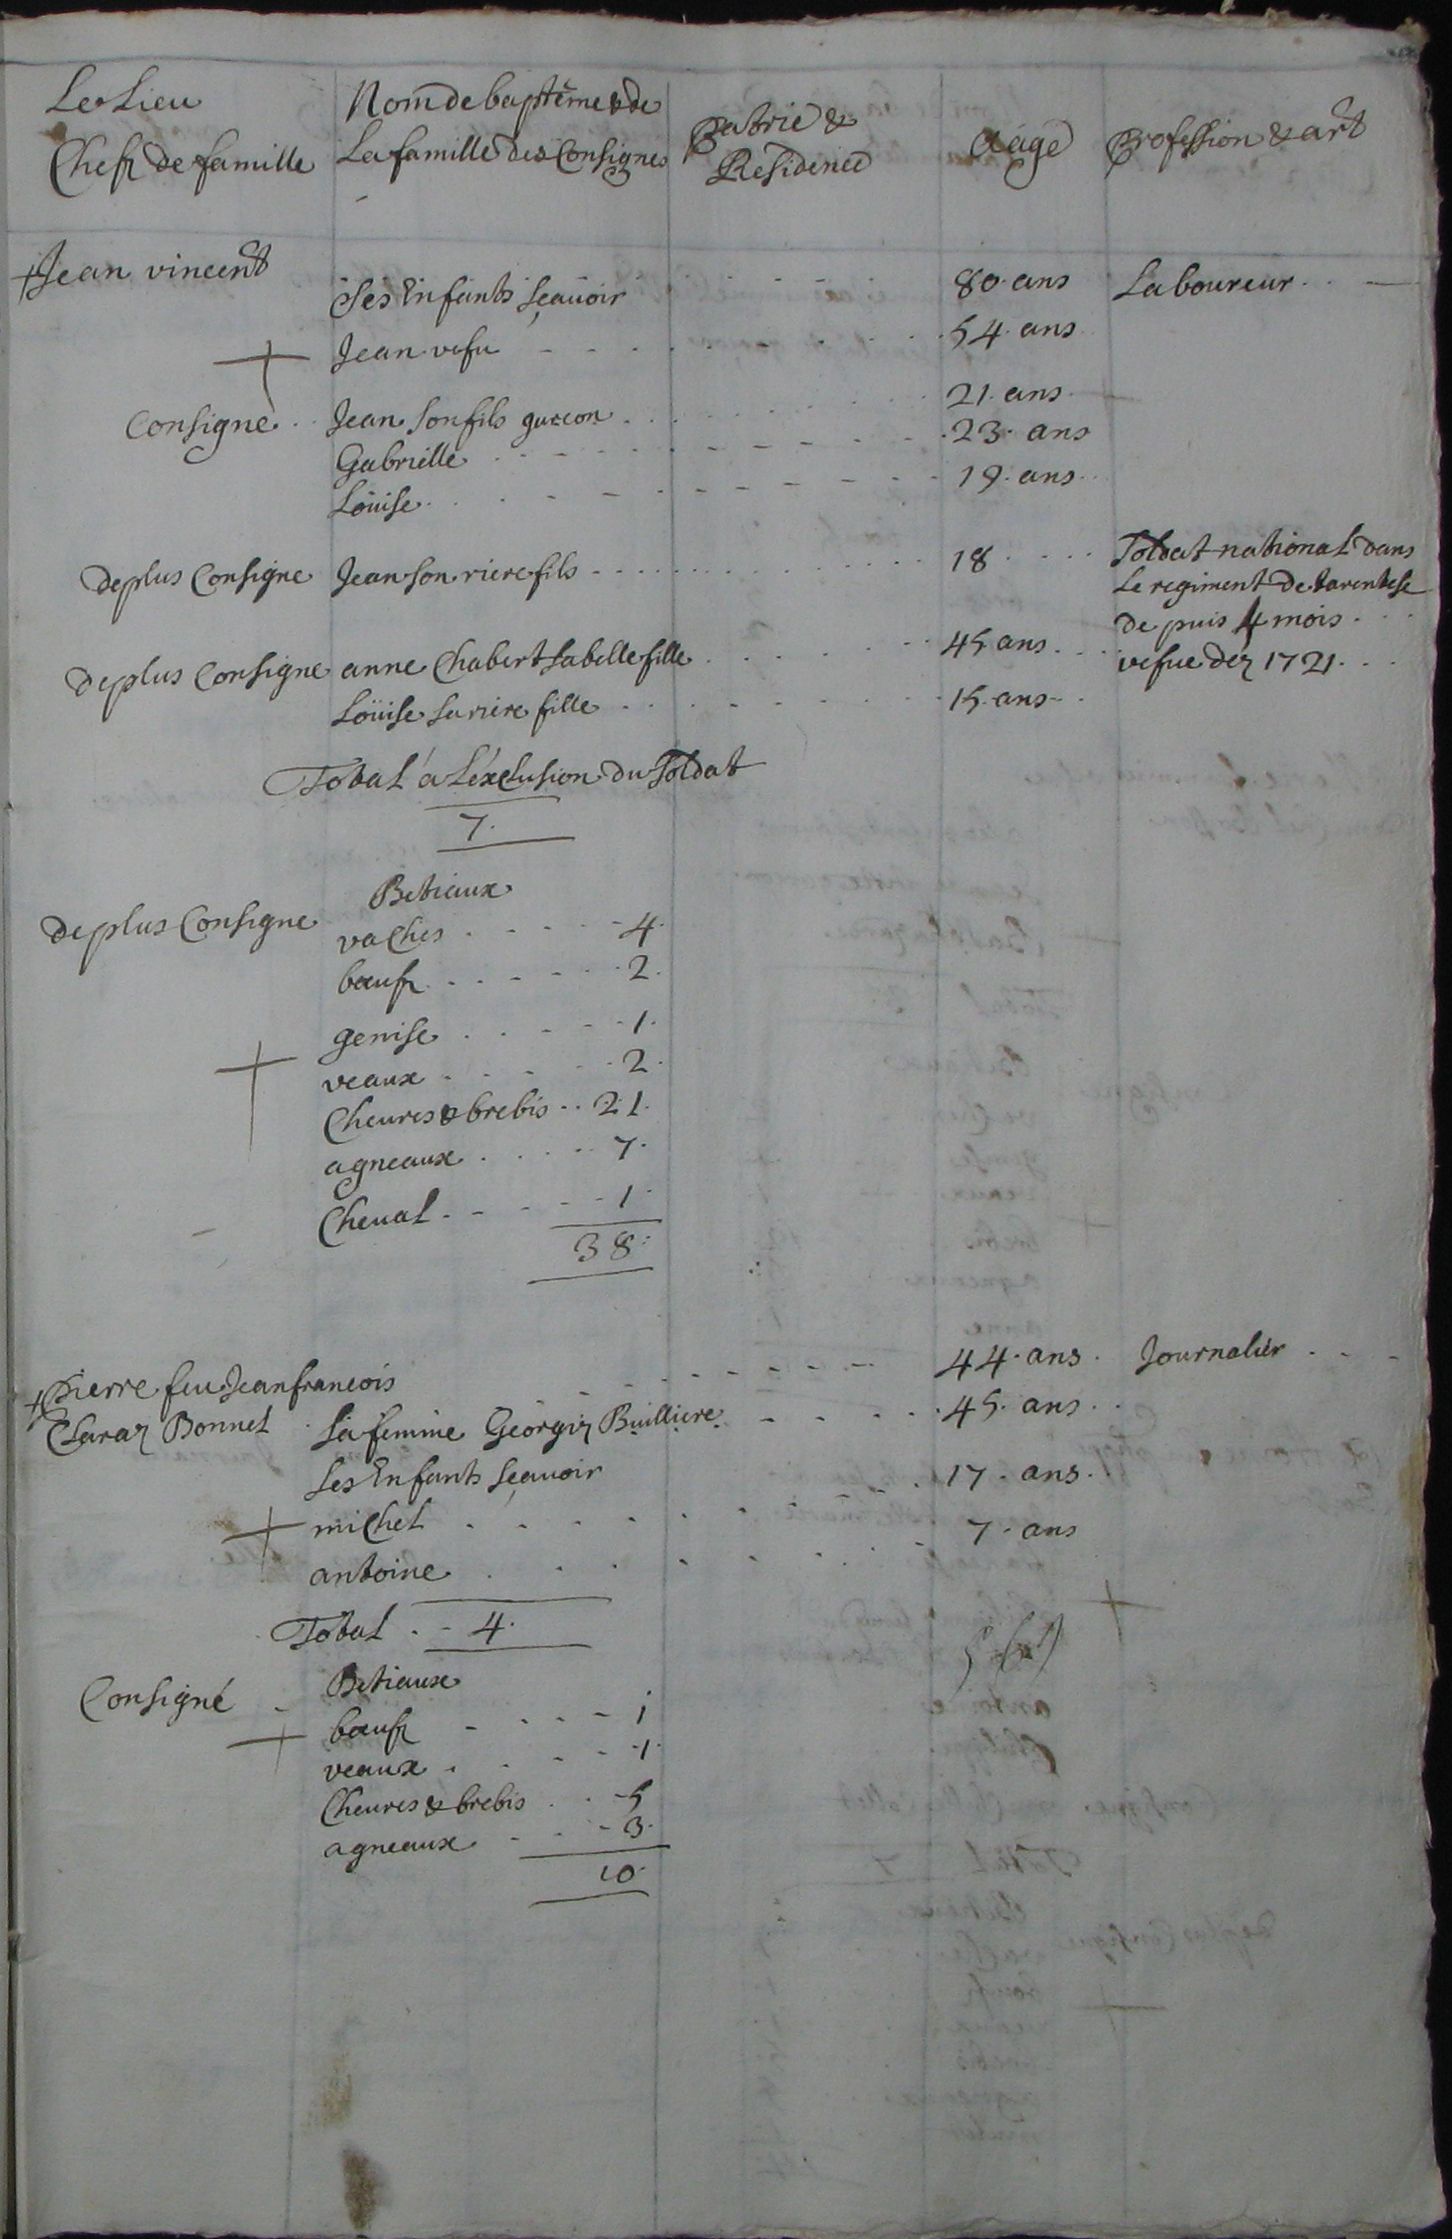 Le Lieu
Chefz de famille
Nom de baptême & de
La famille des Consignes
patrie &
Residence
Aage
profession & art
Jean vincent 80. ans Laboureur
Ses Enfants sçauoir
Jean vefu 54. ans
Consigne Jean son fils garcon 21. ans
Gabrielle 23. ans
Loüise 19. ans
de plus Consigne Jean son riere fils 18 Soldat national dans
Le regiment de tarentese
de puis 4 mois
de plus Consigne anne Chabert sa belle fille 45 ans vefue dez 1721
Loüise sa riere fille 15. ans
Total a L'exclusion du Soldat
7.
Betiaux
de plus Consigne vaches 4.
bœufz 2.
genise 1.
veaux 2.
Cheures & brebis 21.
agneaux 7.
Cheual 1.
38.
pierre feu Jean francois 44. ans Journalier
Claraz Bonnel sa femme Georgiz Builliere 45. ans
ses Enfants sçauoir
michel 17. ans
antoine 7. ans
Total 4.
Consigné Betiaux
bœufz 1
veaux 1.
Cheures & brebis 5
agneaux 3.
10.